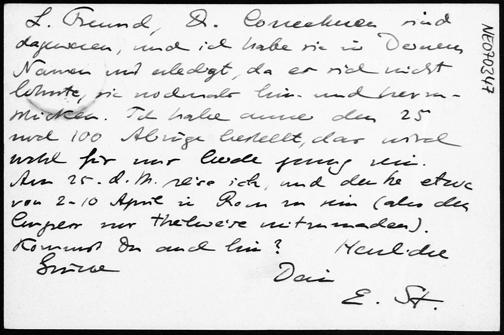 L. Freund, D. Correkturen sind
dagewesen, und ich habe sie in Deinem
Namen mit erledigt, da es sich nicht
lohnte, sie nochmals hin- und herzu-
schicken. Ich habe ausser den 25
noch 100 Abzüge bestellt, das wird
wohl für uns beide genug sein.
Am 25. d. M. reise ich, und denke etwa
von 2-10 April in Rom zu sein (also den
Congress nur theilweise mitzumachen).
Kommst Du auch hin? Herzliche
Grüsse Dein
E. St.
NE070347